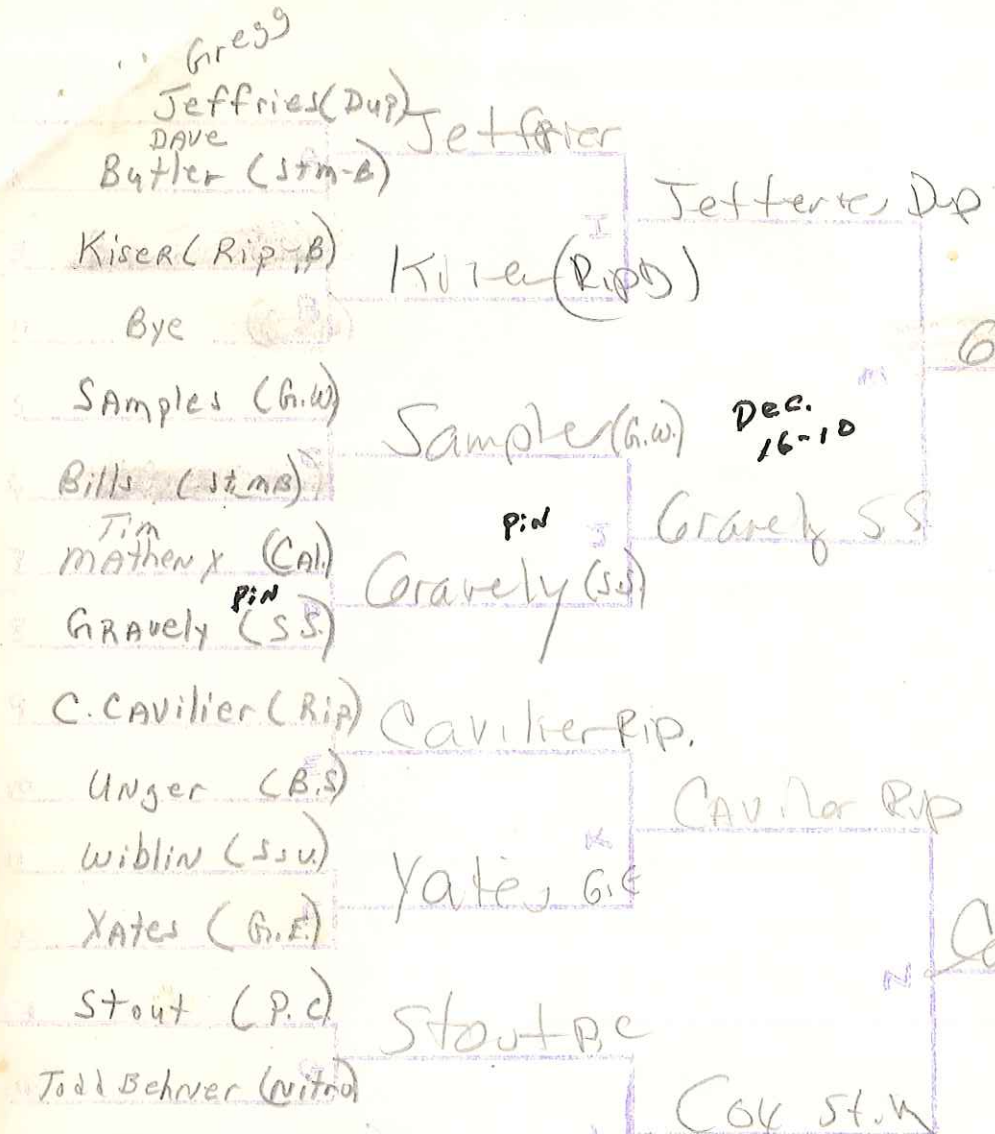 Gregg
Jeffries (Dup)
DAVE
Butler (Stm-B)
Kiser (Rip-B)
Bye
SAmples (G.W)
Bills (StmB)
Tim
MAtheny (CAl.)
PiN
GRAvely (SS.)
C. CAvilier (Rip)
UNger (B.S)
WibliN (SSV.)
YAtes (G.E.)
Stout (P.C)
Todd Behner (Nitro)
Jeffrier
I
Kiser (Rip)
B
Sampler (G.W.)
PiN
J
Gravely (SS)
Cavilier Rip.
K
Yates G.E
Stout P.C
Jefferies Dup
M
Dec.
16-10
Gravely S.S
CAvilier Rip
N
Cox St.
G